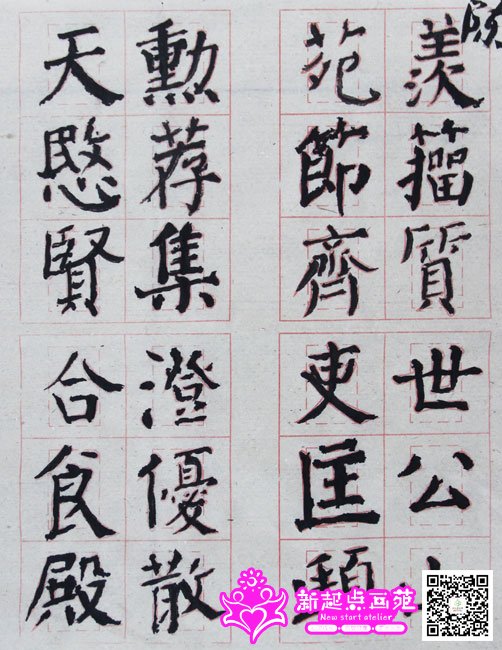 羨籀質世公
苑節齊吏匡
勳荐集澄優散
天愍賢合食殿
新起点画苑
New start atelier